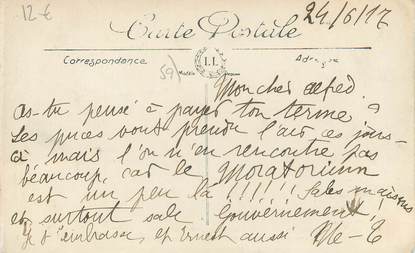 12 €
24/6/17
Carte Postale
Correspondance
Adresse
59
LL
Mon cher Alfred.
As-tu pensé à payer ton terme ?
Les puces vont prendre l'air ces jours-
ci mais l'on n'en rencontre pas
beaucoup, car le Moratorium
est un peu là !!!!!! Sales maisons
et surtout sale Gouvernement,
Je t'embrasse, et Ernest aussi